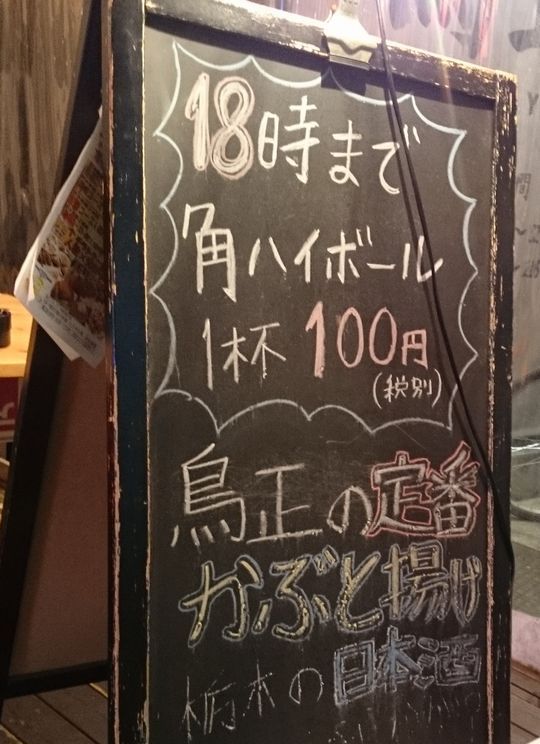 18時まで
角ハイボール
1杯 100円
(税別)
鳥正の定番
かぶと揚げ
栃木の日本酒